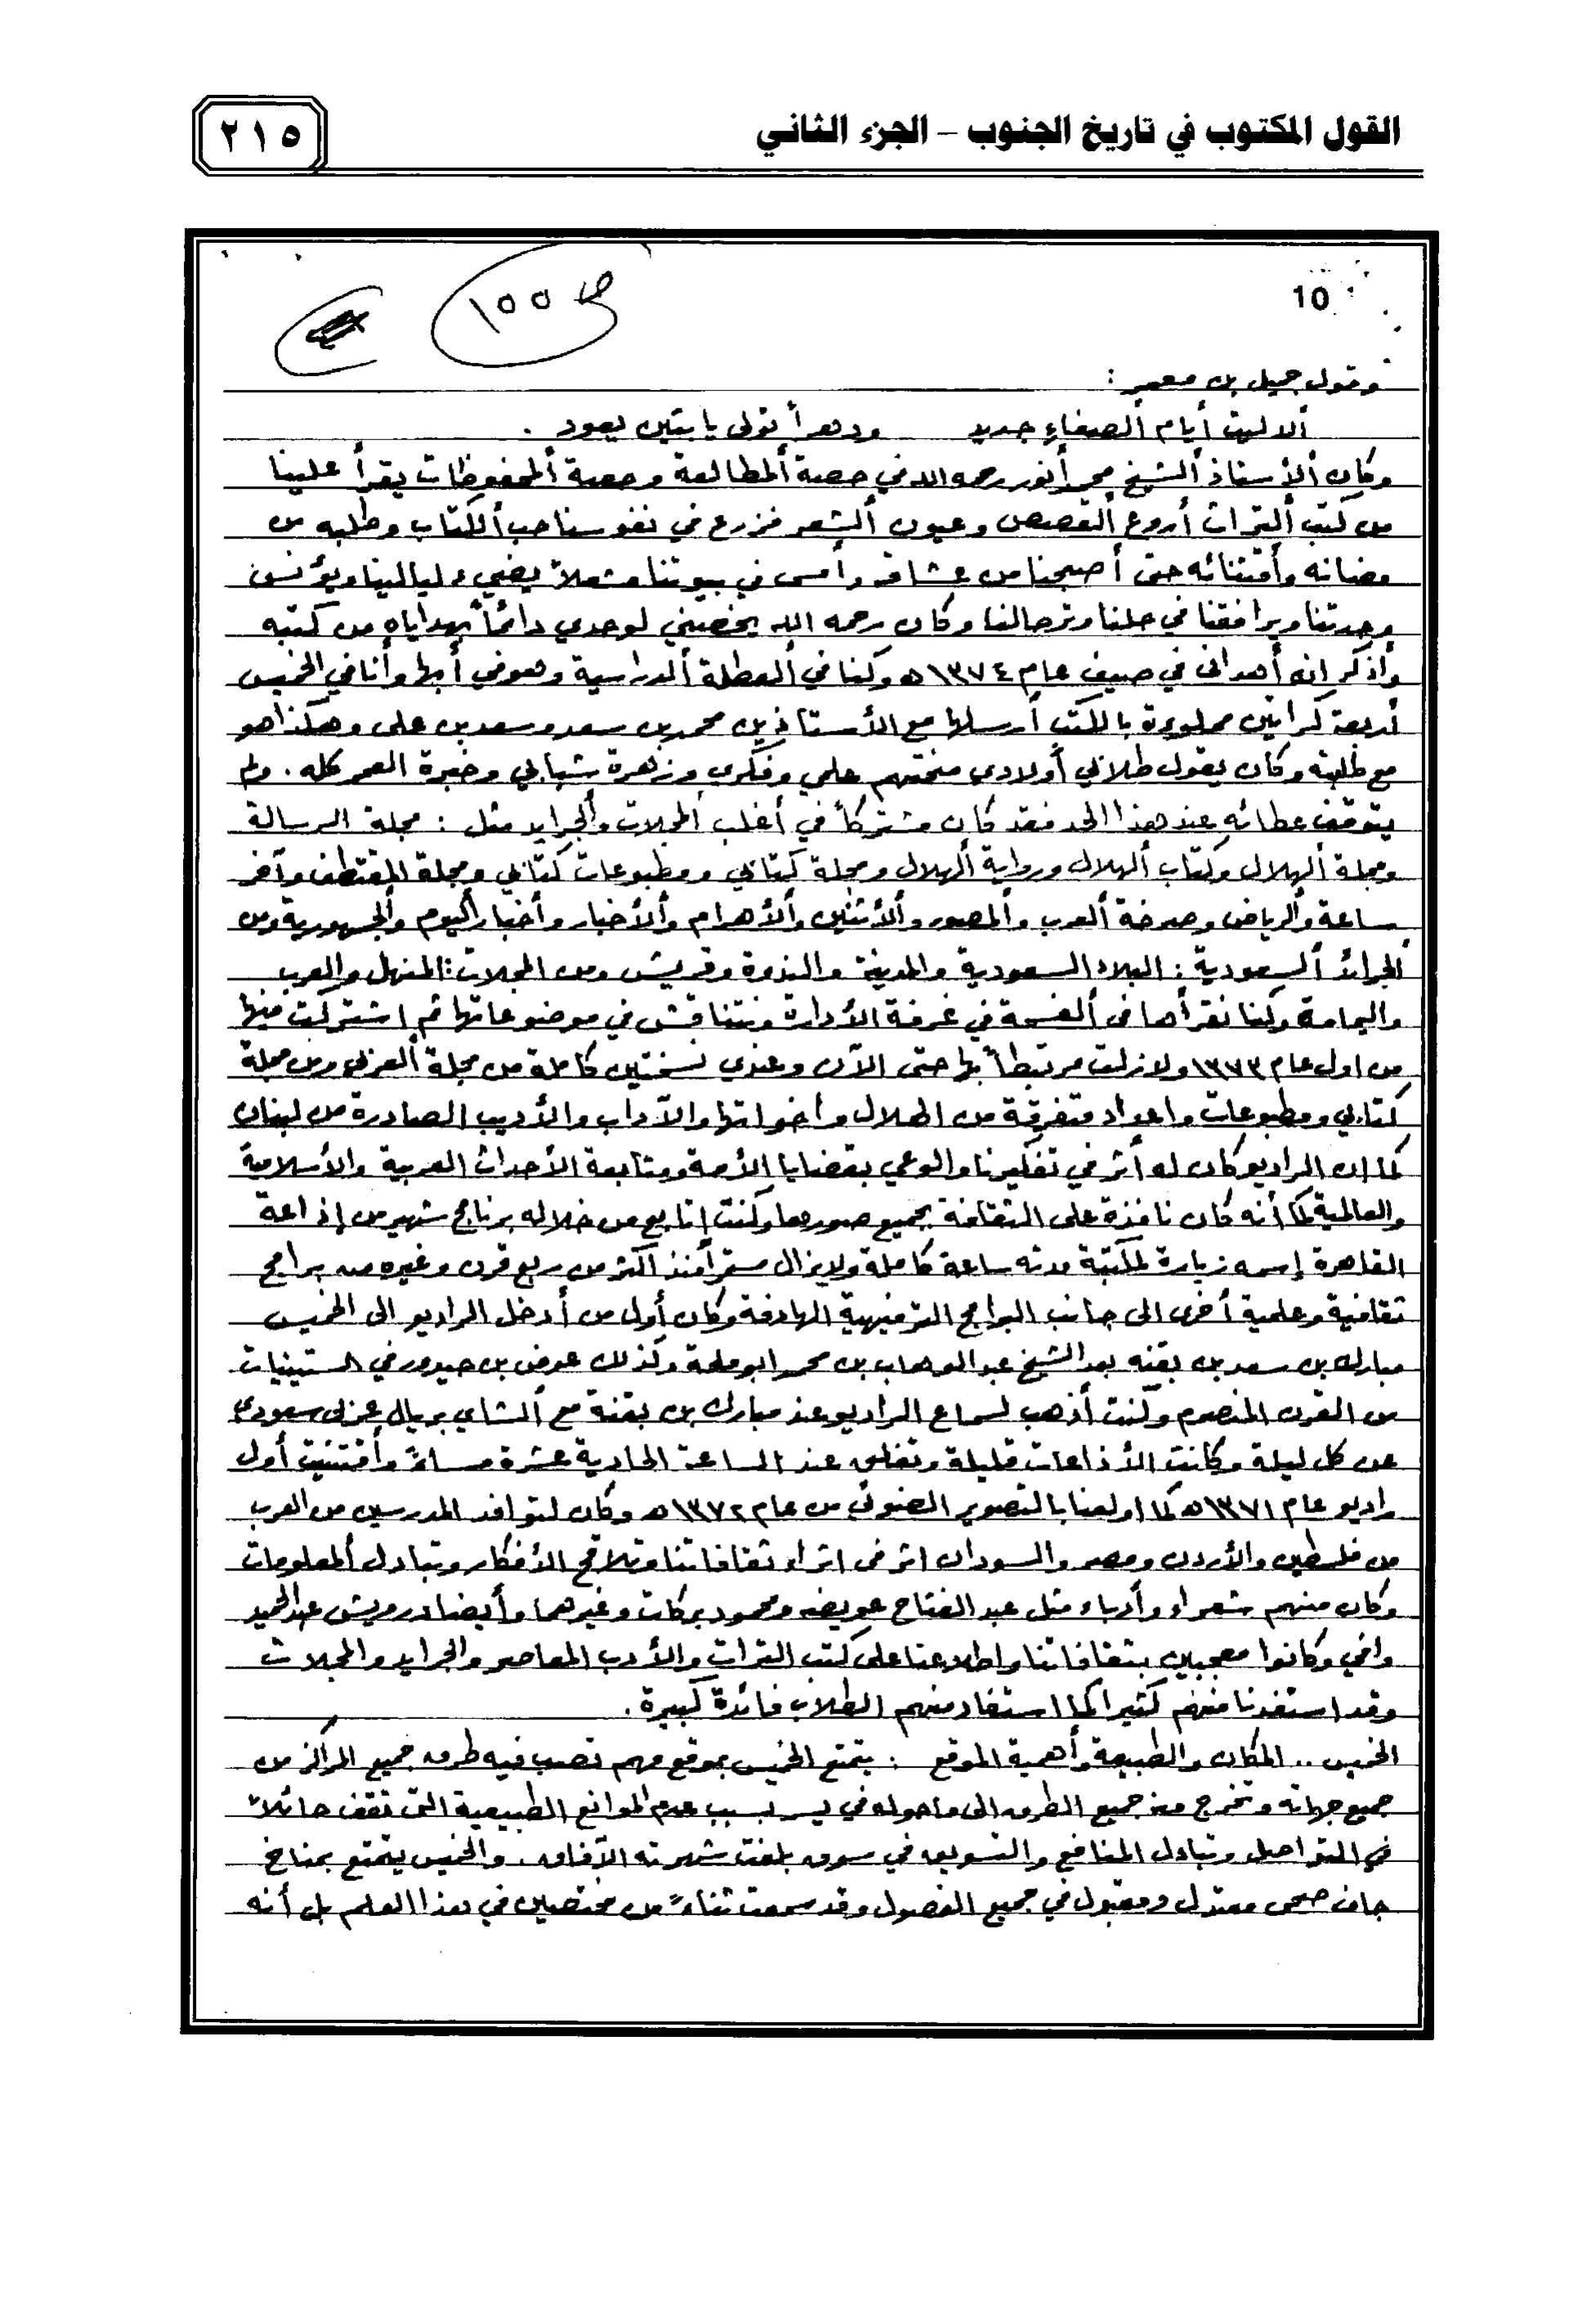 القول المكتوب في تاريخ الجنوب – الجزء الثاني
٢١٥
10
ص ١٥٥
وقول جميل بن معمر :
ألا ليت أيام الصفاء جديد ودهراً تولى يا بثين يعود .
وكان الأستاذ الشيخ محمد أنور رحمه الله في حصة المطالعة وحصة المحفوظات يقرأ علينا
من كتب التراث أروع القصص وعيون الشعر فزرع في نفوسنا حب الكتاب وطلبه من
مضانه وأقتنائه حتى أصبحنا من عشاقه وأمسى في بيوتنا مشعلاً يضيء ليالينا ويؤنس
وحدتنا ويرافقنا في حلنا وترحالنا وكان رحمه الله يخصني لوحدي دائماً بهداياه من كتبه
وأذكر انه أهداني في صيف عام ١٣٧٤ه وكنا في العطلة الدراسية وهو في أبها وأنا في الخميس
أربعة كراتين مملوءة بالكتب أرسلها مع الأستاذين محمد بن سعد وسعد بن على وهكذا هو
مع طلبته وكان يقول طلابي أولادي منحتهم علمي وفكري وزهرة شبابي وخبرة العمر كله . ولم
يتوقف عطائه عند هذا الحد فقد كان مشتركاً في أغلب المجلات والجرايد مثل : مجلة الرسالة
ومجلة الهلال وكتاب الهلال ورواية الهلال ومجلة كتابي ومطبوعات كتابي ومجلة المقتطف وآخر
ساعة والرياض وصرخة العرب والمصور والأثنين والأهرام والأخبار وأخبار اليوم والجمهورية ومن
الجرائد السعودية : البلاد السعودية والمدينة والندوة وقريش ومن المجلات : المنهل والعرب
واليمامة وكنا نقرأها في الفسحة في غرفة الأدارة ونتناقش في موضوعاتها ثم اشتركت فيها
من اول عام ١٣٧٣ ولا زلت مرتبطاً بها حتى الآن وعندي نسختين كاملة من مجلة العربي ومن مجلة
كتابي ومطبوعات واعداد متفرقة من الهلال واخواتها والآداب والأديب الصادرة من لبنان
كما ان الراديو كان له أثر في تفكيرنا والوعي بقضايا الأمة ومتابعة الأحداث العربية والأسلامية
والعالمية كما أنه كان نافذة على الثقافة بجميع صورها وكنت اتابع من خلاله برنامج شهير من إذاعة
القاهرة إسمه زيارة لمكتبة مدته ساعة كاملة ولا يزال مستمراً منذ اكثر من ربع قرن وغيره من برامج
ثقافية وعلمية أخرى الى جانب البرامج الترفيهية الهادفة وكان أول من أدخل الراديو الى الخميس
مبارك بن سعد بن بقنه بعد الشيخ عبد الوهاب بن محمد ابو ملحة وكذلك عوض بن حيدور في الستينيات
من القرن المنصرم وكنت أذهب لسماع الراديو عند مبارك بن بقنة مع الشاي بريال عربي سعودي
عن كل ليلة وكانت الأذاعات قليلة وتغلق عند الساعة الحادية عشرة مساءً وأقتنيت أول
راديو عام ١٣٧١ه كما اولعنا بالتصوير الضوئي من عام ١٣٧٢ه وكان لتوافد المدرسين من العرب
من فلسطين والأردن ومصر والسودان اثر في اثراء ثقافاتنا وتلاقح الأفكار وتبادل المعلومات
وكان منهم شعراء وأدباء مثل عبد الفتاح عويضه ومحمود بركات وغيرهما وأيضا درويش عبد الحميد
وافي وكانوا معجبين بثقافاتنا واطلاعنا على كتب التراث والأدب المعاصر والجرايد والمجلات
وقد استفدنا منهم كثيرا كما استفاد منهم الطلاب فائدة كبيرة .
الخميس .. المكان والطبيعة وأهمية الموقع : يتمتع الخميس بموقع مهم تصب فيه طرق جميع المراكز من
جميع جهاته وتخرج منه جميع الطرق الى ماحوله في يسر بسبب عدم الموانع الطبيعية التي تقف حائلاً
في التواصل وتبادل المنافع والتسويق في سوق بلغت شهرته الآفاق . والخميس يتمتع بمناخ
جاف صحي معتدل ومقبول في جميع الفصول وقد سمعت ثناءً من مختصين في هذا العلم بل أنه